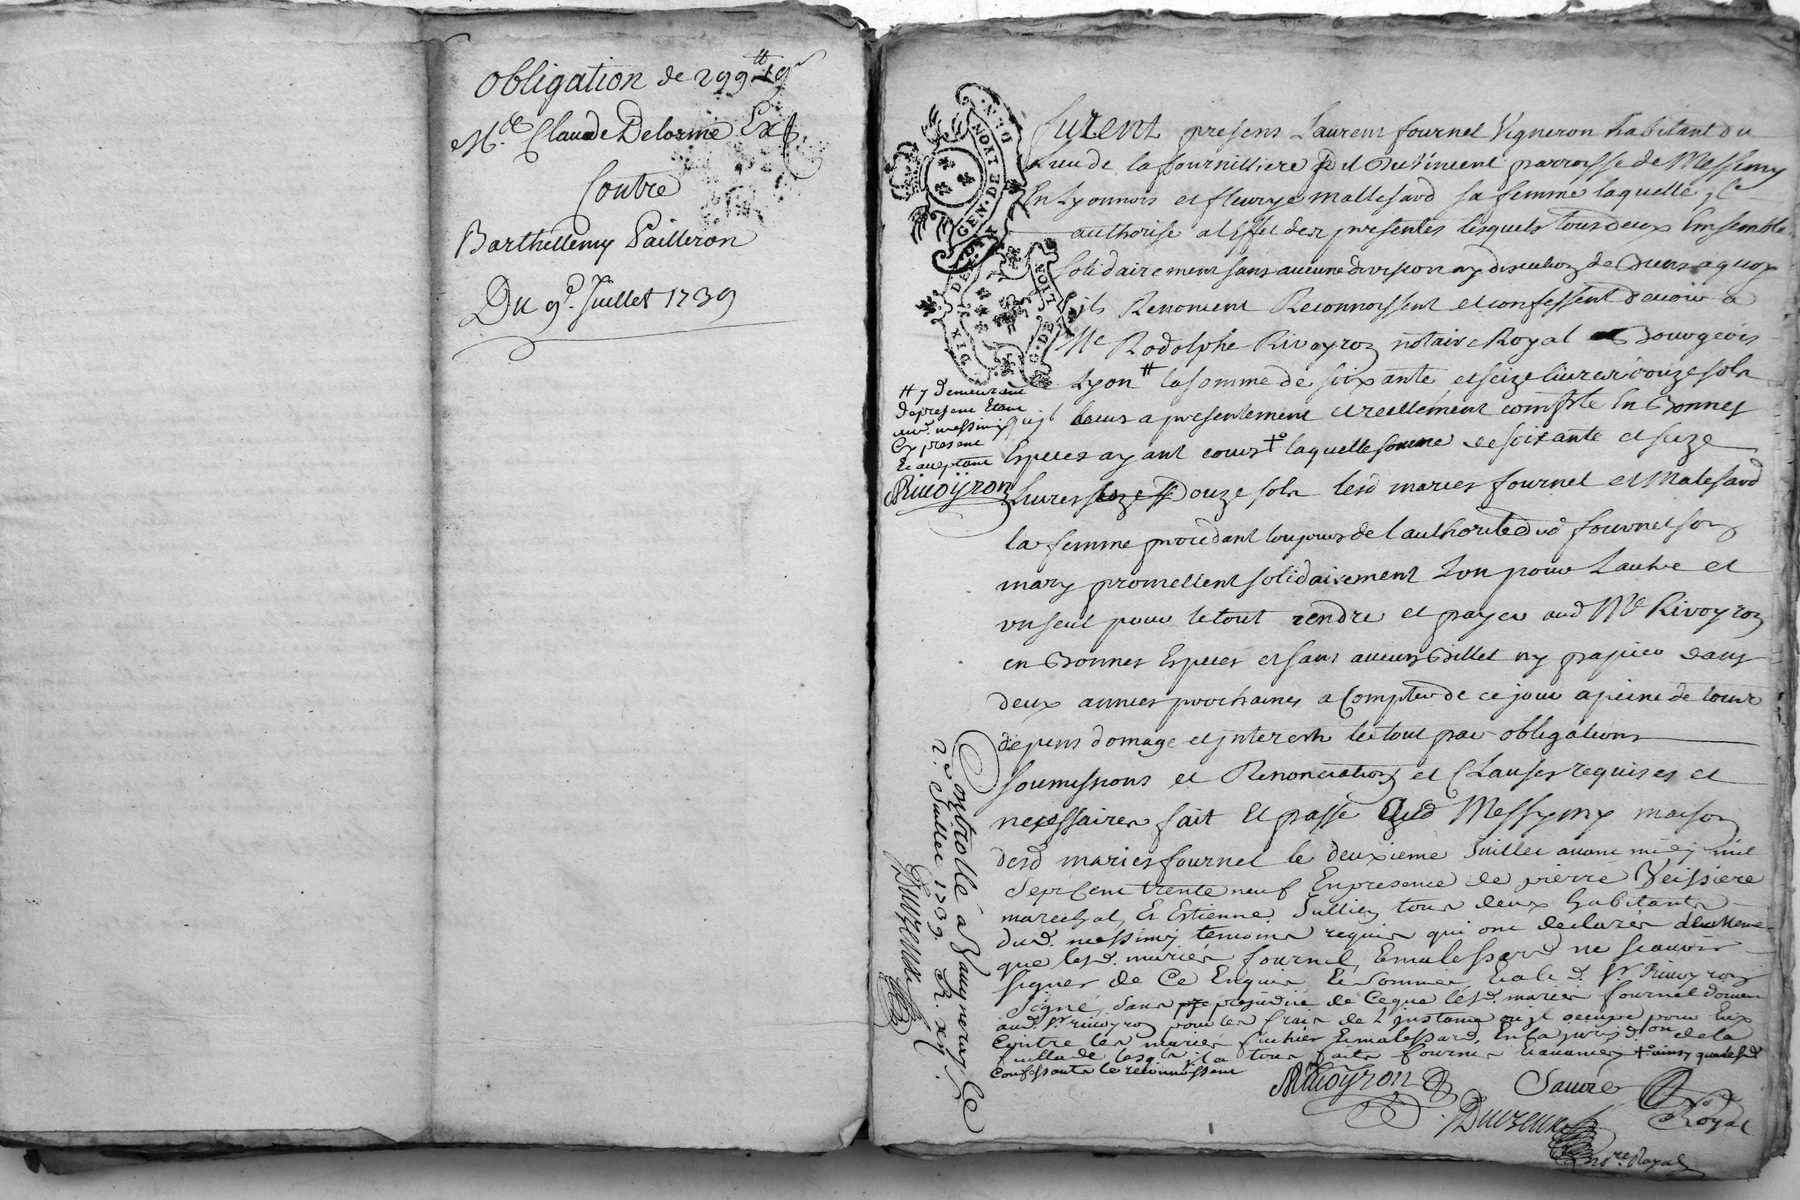 Obligation de 299# 19s
Me. Claude Delorme
Contre
Barthellemy Pailleron
Du 9e. Juillet 1739
GEN. DE LYON
DEUX
DIX DEN
G. DE LION
furent presens Laurent fournel Vigneron habitant du
lieu de la fournilliere parroisse de Messimy
En Lyonnois et fleurye mallesard sa femme laquelle il
authorise a l Effet des presentes lesquels tous deux Ensemble
solidairement sans aucune division ny discution de Biens a quoy
ils Renoncent Reconnoissent et confessent devoir a
Me Rodolphe Rivoyron notaire Royal Bourgeois
de Lyon # la somme de soixante et seize livres douze sols
qu'il leurs a presentement et reellement compte En Bonnes
Especes ayant cours + laquelle somme de soixante et seize
Livres douze sols lesd maries fournel et Malesard
la femme procedant toujours de l authorite dud fournel son
mary promettent solidairement L'un pour L'autre et
un seul pour le tout rendre et payer aud Me Rivoyron
en Bonnes Especes et sans aucun Billet ny papier dans
deux annees prochaines a Compter de ce jour a peine de tous
depens domage et interests le tout par obligations
soumissions et Renonciations et Clauses requises et
necessaires fait et passe aud Messymy maison
desd maries fournel le deuxieme Juillet avant midy mil
Sept Cent trente neuf En presence de pierre Veissiere
marechal, Et Estienne Jullien tous deux habitants
dud. messimy temoins requis qui ont declarés
que lesd. mariés fournel, & malessard ne scavoir
signer de Ce Enquis Et Sommés Et a led. Sr. Rivoyron
Signé, sans prejudice de Ceque lesd. mariés fournel doivent
aud. Sr rivoyron pour les frais de L'instance ou il occupe pour Eux
Contre les mariés & malessard, En la jurisdon de la
faits fournis & avancés + ainsy que lesd.
Confessants le reconnoissent
# y demeurant
de present Etant
aud. messimy
Cy present
Et aceptant
Rivoyron
Controllé à Vaugneray Le
2e. Juillet 1739. R. xs.
Duvzeuux
Rivoyron
Sauvé
Royal
Nore. Royal